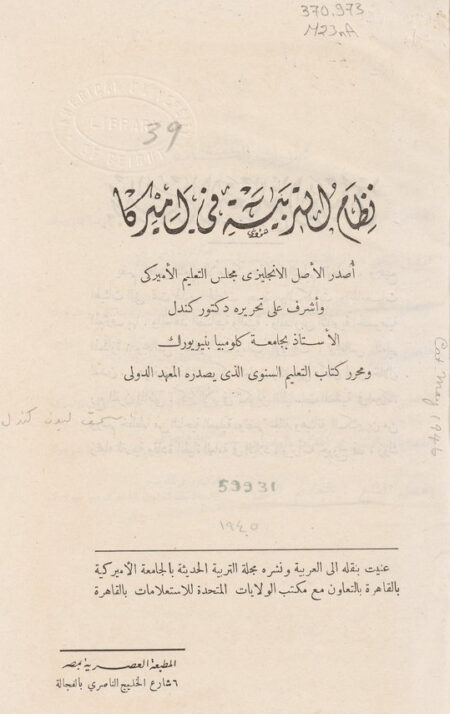 370.973
M23nA
39
نظام التربية في اميركا
أصدر الأصل الانجليزى مجلس التعليم الأميركى
وأشرف على تحريره دكتور كندل
الأستاذ بجامعة كلومبيا بنيويورك
ومحرر كتاب التعليم السنوى الذى يصدره المعهد الدولى
Cat May 1946
ليون كندل
59931
١٩٤٥
عنيت بنقله الى العربية ونشره مجلة التربية الحديثة بالجامعة الأميركية
بالقاهرة بالتعاون مع مكتب الولايات المتحدة للاستعلامات بالقاهرة
المطبعة العصرية بمصر
٦ شارع الخليج الناصري بالفجالة